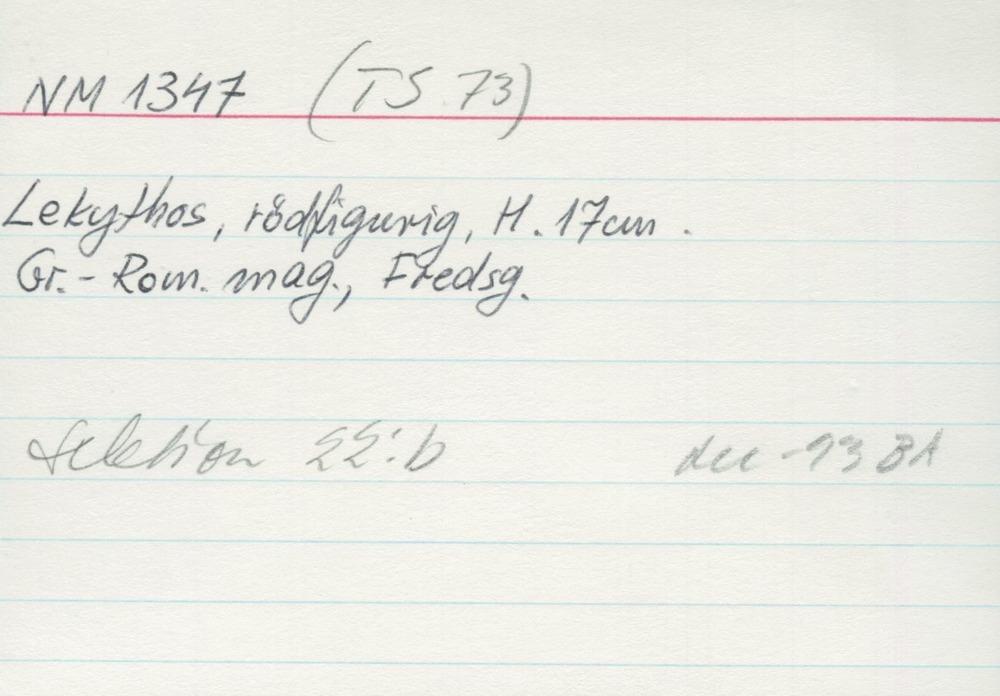 NM 1347 (TS 73)
Lekythos, rödfigurig, H. 17cm.
Gr.-Rom. mag., Fredsg.
Sektion 22:b dec -93 BA